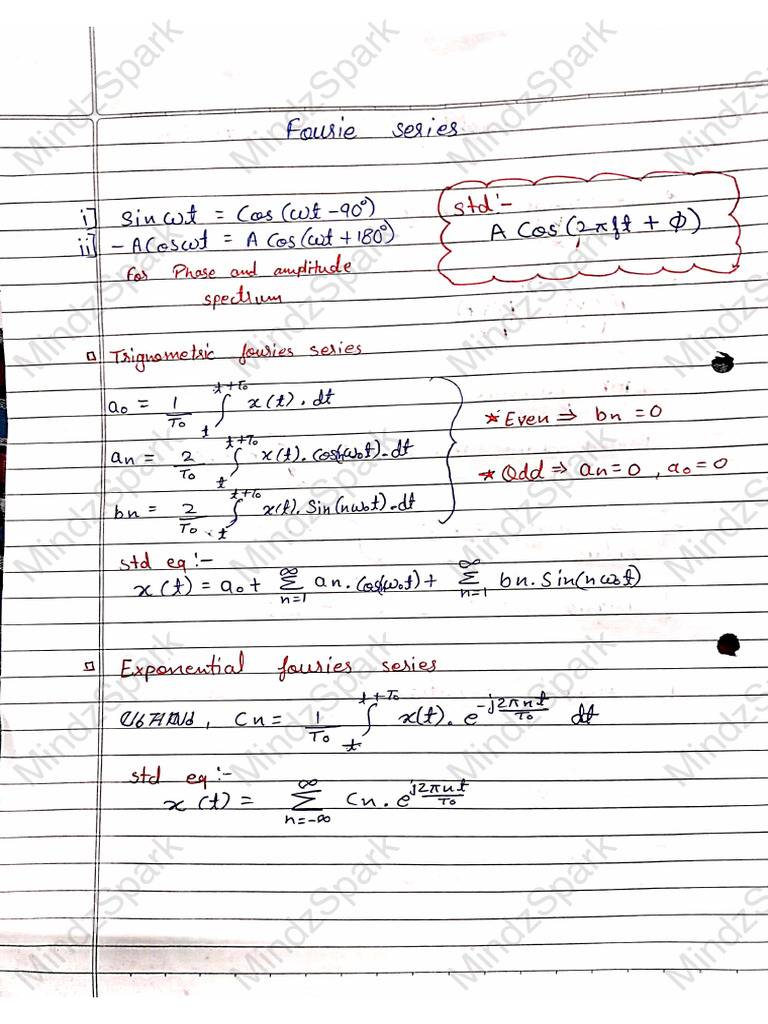 Fourie series
i] sin ωt = Cos (ωt -90°)
ii] - A Cos ωt = A Cos (ωt + 180°)
For Phase and amplitude
spectrum
std :-
A Cos (2πft + Φ)
▫ Trignometric fouries series
a₀ = 1/T₀ ∫ₜ^(t+T₀) x(t) . dt
an = 2/T₀ ∫ₜ^(t+T₀) x(t). Cos(nω₀t) . dt
bn = 2/T₀ ∫ₜ^(t+T₀) x(t). Sin(nω₀t) . dt
* Even ⇒ bn = 0
* Odd ⇒ an = 0 , a₀ = 0
std eq :-
x(t) = a₀ + ∞Σn=1 an . Cos(nω₀t) + ∞Σn=1 bn . Sin(nω₀t)
▫ Exponential fouries series
Cn = 1/T₀ ∫ₜ^(t+T₀) x(t) . e^(-j2πnt/T₀) dt
std eq :-
x(t) = ∞Σn=-∞ Cn . e^(j2πnt/T₀)
MindzSpark